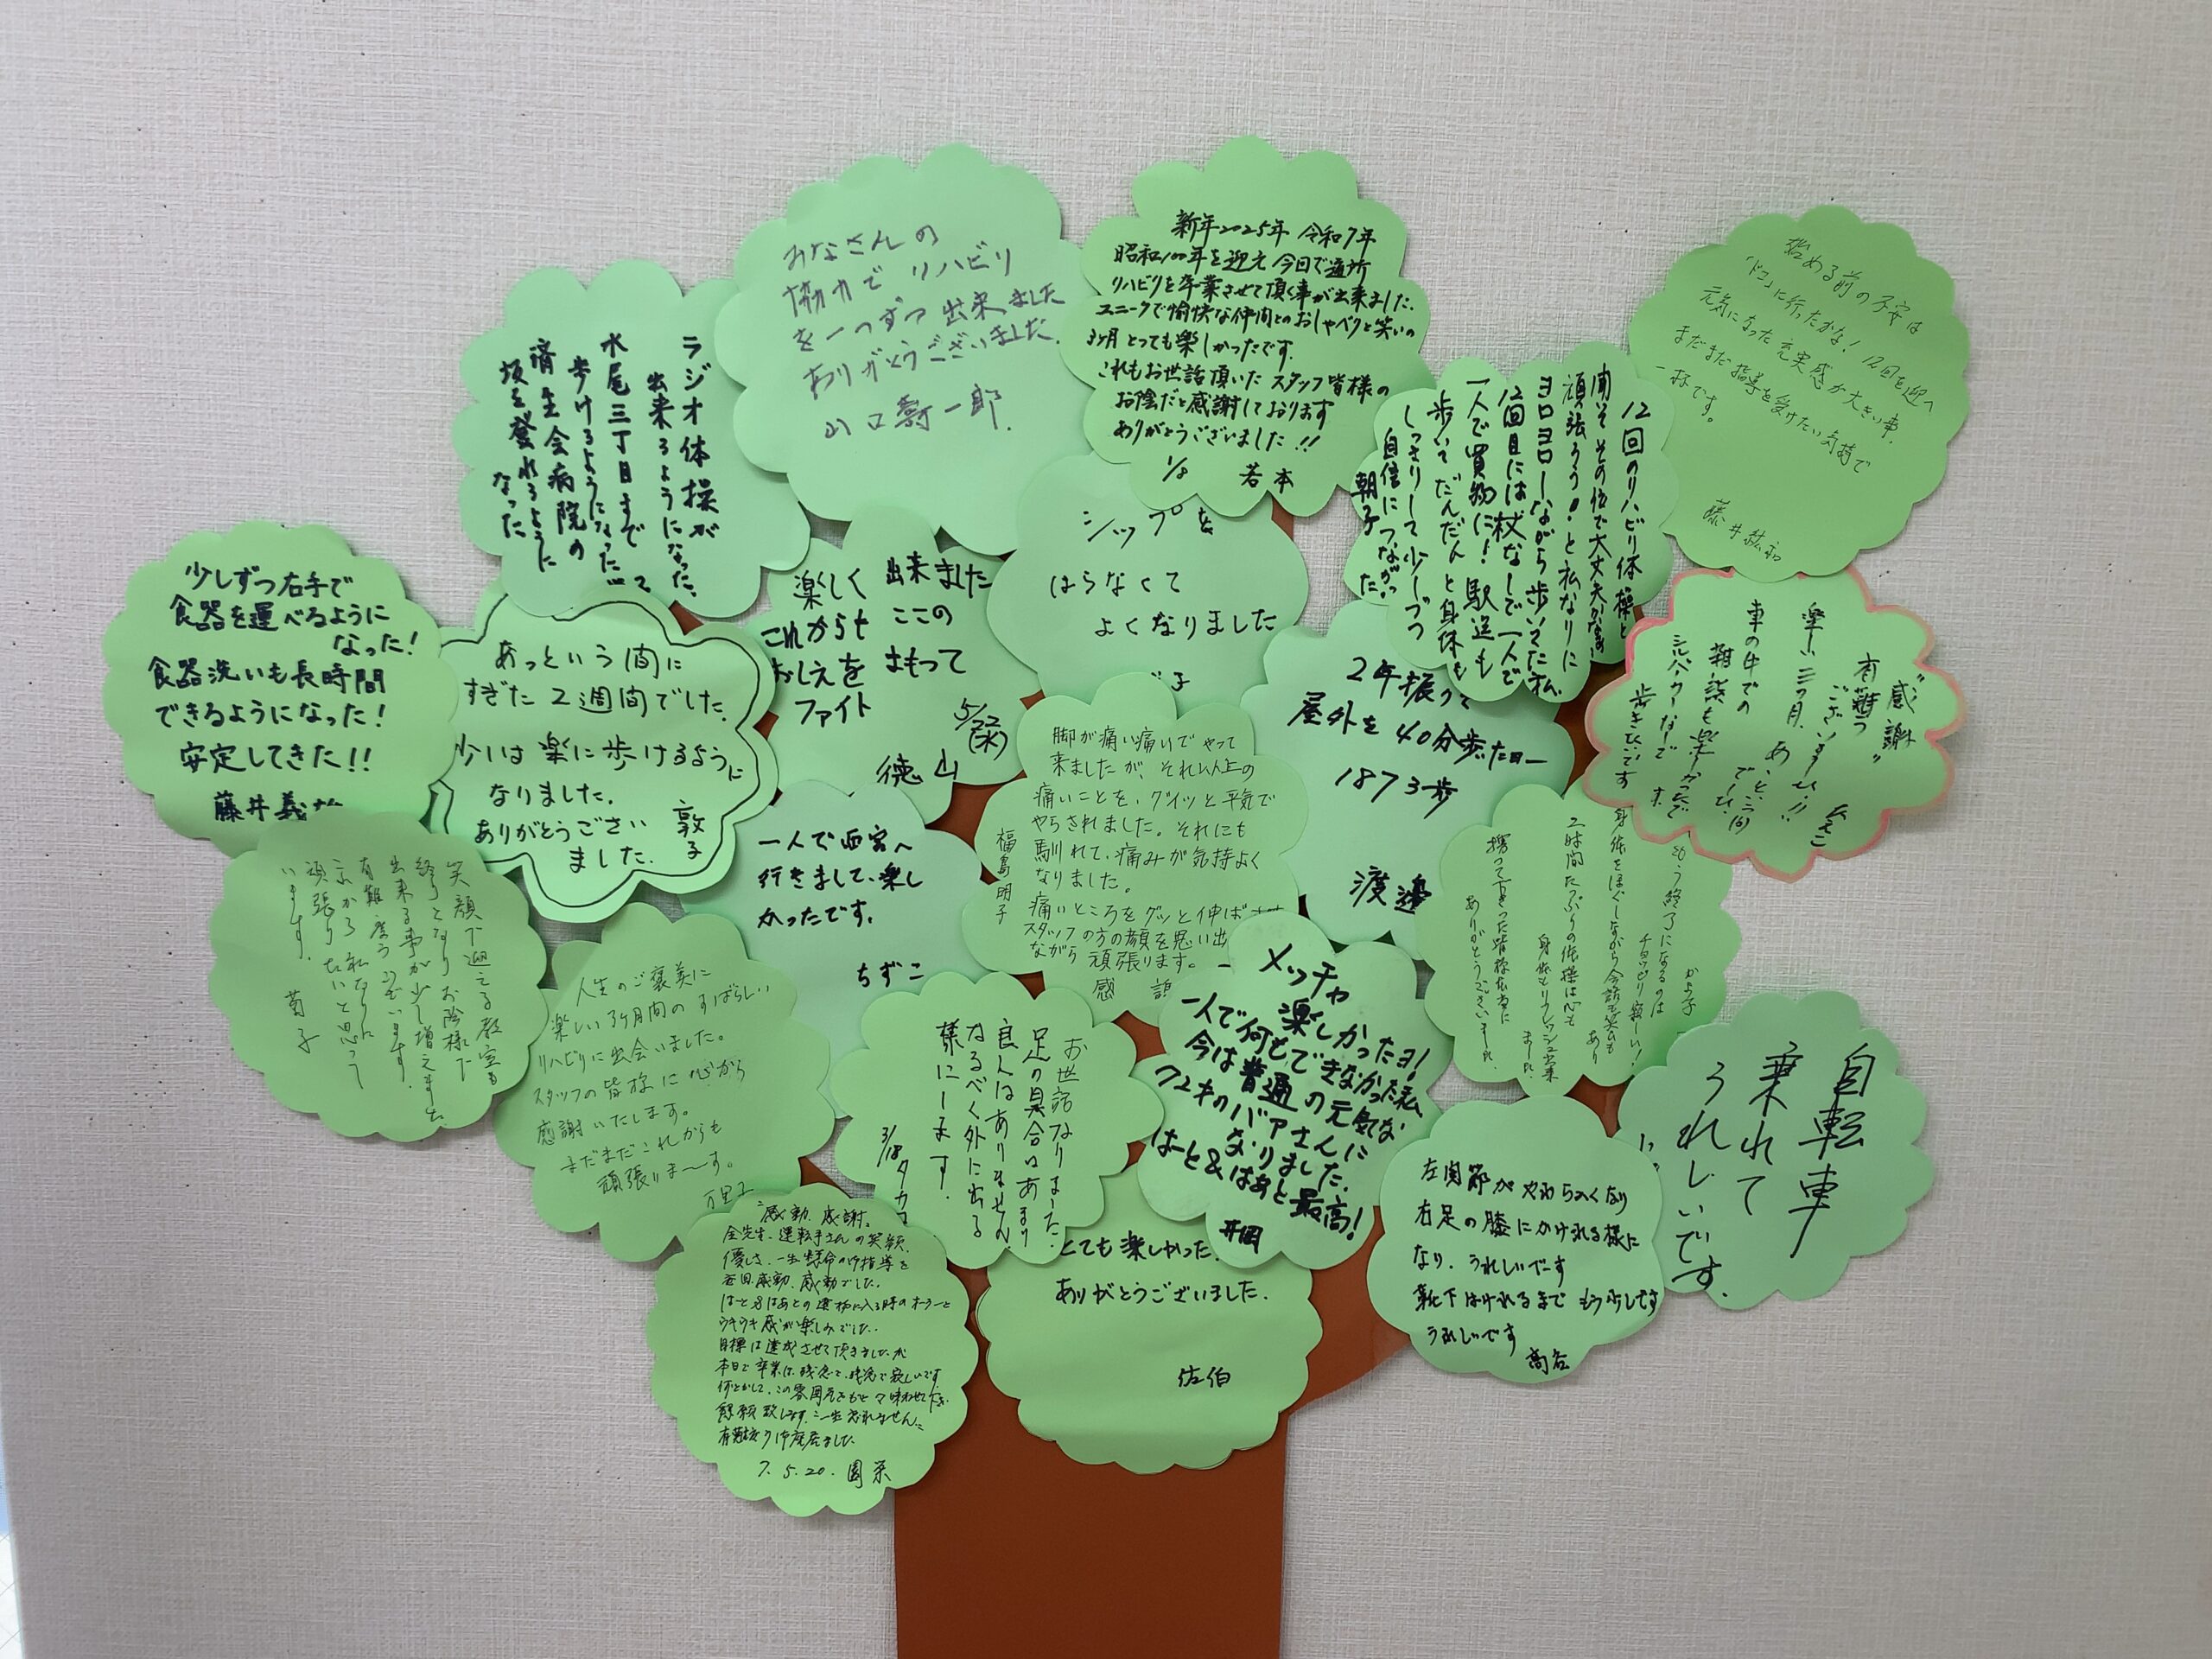 みなさんの
協力で リハビリ
を一つずつ 出来ました
ありがとうございました.
山口壽一郎
新年2025年 令和7年
昭和100年を迎え 今回で通所
リハビリを卒業させて頂く事が出来ました.
ユニークで愉快な仲間とのおしゃべりと笑いの
3ヶ月 とっても楽しかったです.
これもお世話頂いた スタッフ皆様の
お陰だと感謝しております
ありがとうございました!!
1/8 若本
始める前の不安は
「ドコ」に行ったかな! 12回を迎へ
元気になった充実感が大きい事.
まだまだ指導を受けたい気持で
一杯です。
藤井紘和
ラジオ体操が
出来るようになった.
水尾三丁目まで
歩けるようになった
済生会病院の
坂を登れるように
なった
12回のリハビリ体操と
頑張ろう!と私なりに
ヨロヨローながら歩いてた私
12回目には杖なしで一人で
一人で買物に! 駅迄も
歩いてだんだんと身体も
しっきりして少しづつ
自信につながった.
朝子
少しずつ右手で
食器を運べるように
なった!
食器洗いも長時間
できるようになった!
安定してきた!!
藤井義
あっという間に
すぎた2週間でした.
少しは楽に歩けるように
なりました.
ありがとうござい
ました.
敦子
楽しく 出来ました
これからも ここの
おしえを まもって
ファイト
5/22(木)
徳山
シップを
はらなくて
よくなりました
2年振りで
屋外を40分歩いた日ー
1873歩
渡邊
"感謝"
有難う
ございます!!
楽しい三ヶ月.
車の中での
雑談も楽しかったです.
シルバーカーなしで
歩きたいです
一人で西宮へ
行きまして、楽し
かったです.
ちずこ
脚が痛い痛いで やって
来ましたが、それ以上の
痛いことを、グイッと平気で
やらされました。それにも
馴れて、痛みが気持よく
なりました。
痛いところをグッと伸ば
スタッフの方の顔を思い出
ながら 頑張ります。
感謝
福島明子
もう終了になるのは
チョッピリ寂しーい!
身体をほぐしながら会話も笑いもあり
2時間たっぷりの体操は心も
身体もリフレッシュ出来
ました.
携って下さった皆様本当に
ありがとうございました.
かよ子
笑顔で迎える教室も
終りとなりお陰様で
出来る事が少し増えました
有難度うございます.
これから私なりに
頑張りたいと思って
います.
菊子
人生のご褒美に
楽しい3ヶ月間のすばらしい
リハビリに出会いました。
スタッフの皆様に心から
感謝いたします。
まだまだこれからも
頑張りまーす。
お世話なりました.
足の具合はあまり
良くはありません.
なるべく外に出る
様にします.
3/18
メッチャ
楽しかったヨ!
一人で何もできなかった私
今は普通の元気な
72才のバアさんに
なりました.
はーと&はあと最高!
井岡
自転車
乗れて
うれしいです.
左関節がやわらかくなり
右足の膝にかけれる様に
なり. うれしいでーす
靴下はけれるまで もう少しです
うれしいです
高谷
「感動.感謝」
全先生、運転手さんの笑顔.
優しさ.一生懸命の御指導を
毎回感動.感動でした.
はーと&はあとの建物に入る時のオーラーと
ウキウキ感が楽しみでした..
目標は達成させて頂きましたが
本日で卒業は.残念で.残念で寂しいです
何とかして.この雰囲気をもっと々味わせて下さい
懇願致します.一生忘れません..
有難度う御座居ました
7.5.20.
とても楽しかった.
ありがとうございました.
佐伯